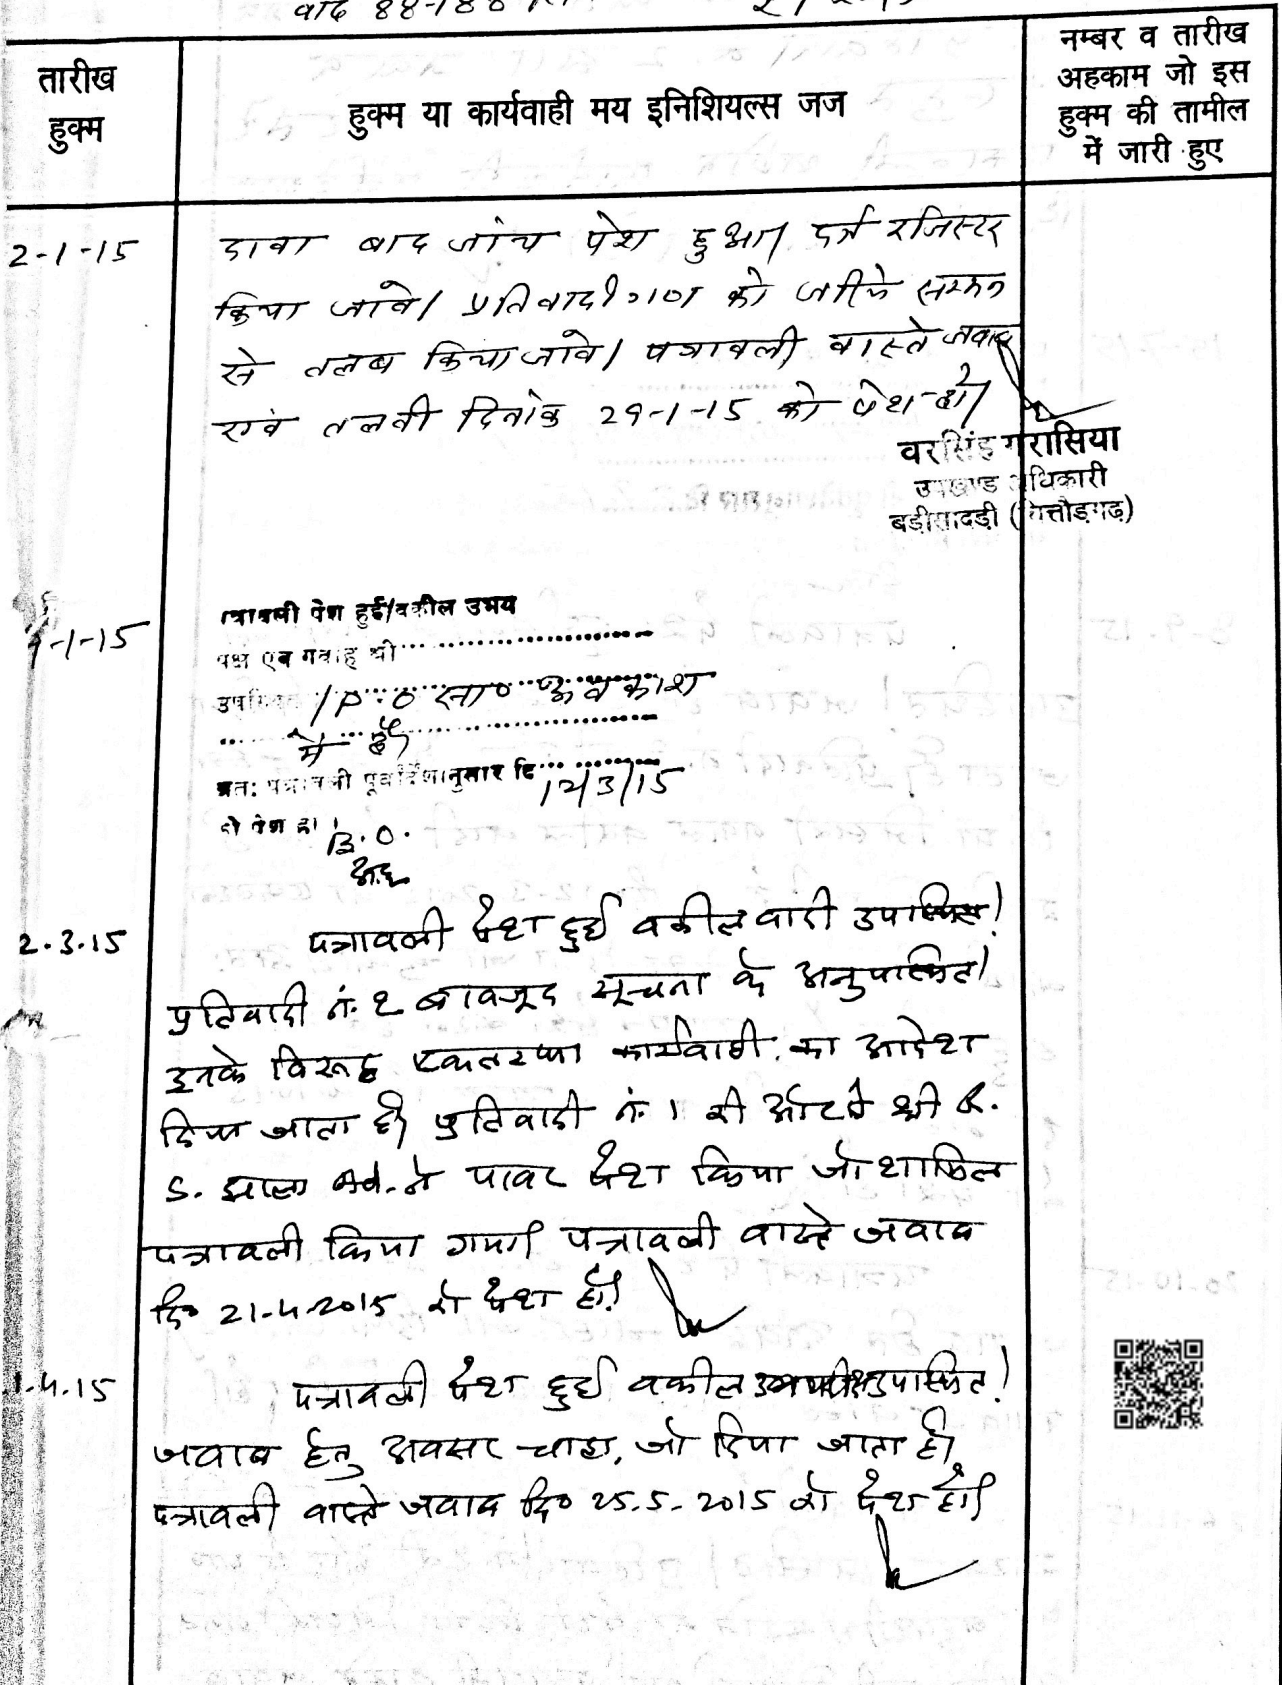 वाद 88-188
तारीख
हुक्म
हुक्म या कार्यवाही मय इनिशियल्स जज
नम्बर व तारीख
अहकाम जो इस
हुक्म की तामील
में जारी हुए
2-1-15
दावा बाद जांच पेश हुआ। दर्ज रजिस्टर
किया जावे। प्रतिवादीगण को जरिये सम्मन
से तलब किया जावे। पत्रावली वास्ते जवाब
एवं तलबी दिनांक 29-1-15 को पेश हो।
वरसिंह गरासिया
उपखण्ड अधिकारी
बडीसादडी (चित्तौड़गढ़)
-1-15
पत्रावली पेश हुई/वकील उभय
पक्ष एवं गवाह श्री
उपस्थित / P.O सा० अवकाश
में है।
अतः पत्रावली पूर्वादेशानुसार दि 12/3/15
को पेश हो।
B.O.
2.3.15
पत्रावली पेश हुई वकील वादी उपस्थित।
प्रतिवादी नं. 2 बावजूद सूचना के अनुपस्थित।
इनके विरूद्ध एकतरफा कार्यवाही का आदेश
दिया जाता है। प्रतिवादी नं. 1 की ओर से श्री R.
S. झाला एड. ने पावर पेश किया जो शामिल
पत्रावली किया गया। पत्रावली वास्ते जवाब
दि० 21-4-2015 को पेश हो।
.4.15
पत्रावली पेश हुई वकील उभयपक्ष उपस्थित।
जवाब हेतु अवसर चाहा, जो दिया जाता है।
पत्रावली वास्ते जवाब दि० 25.5.2015 को पेश हो।